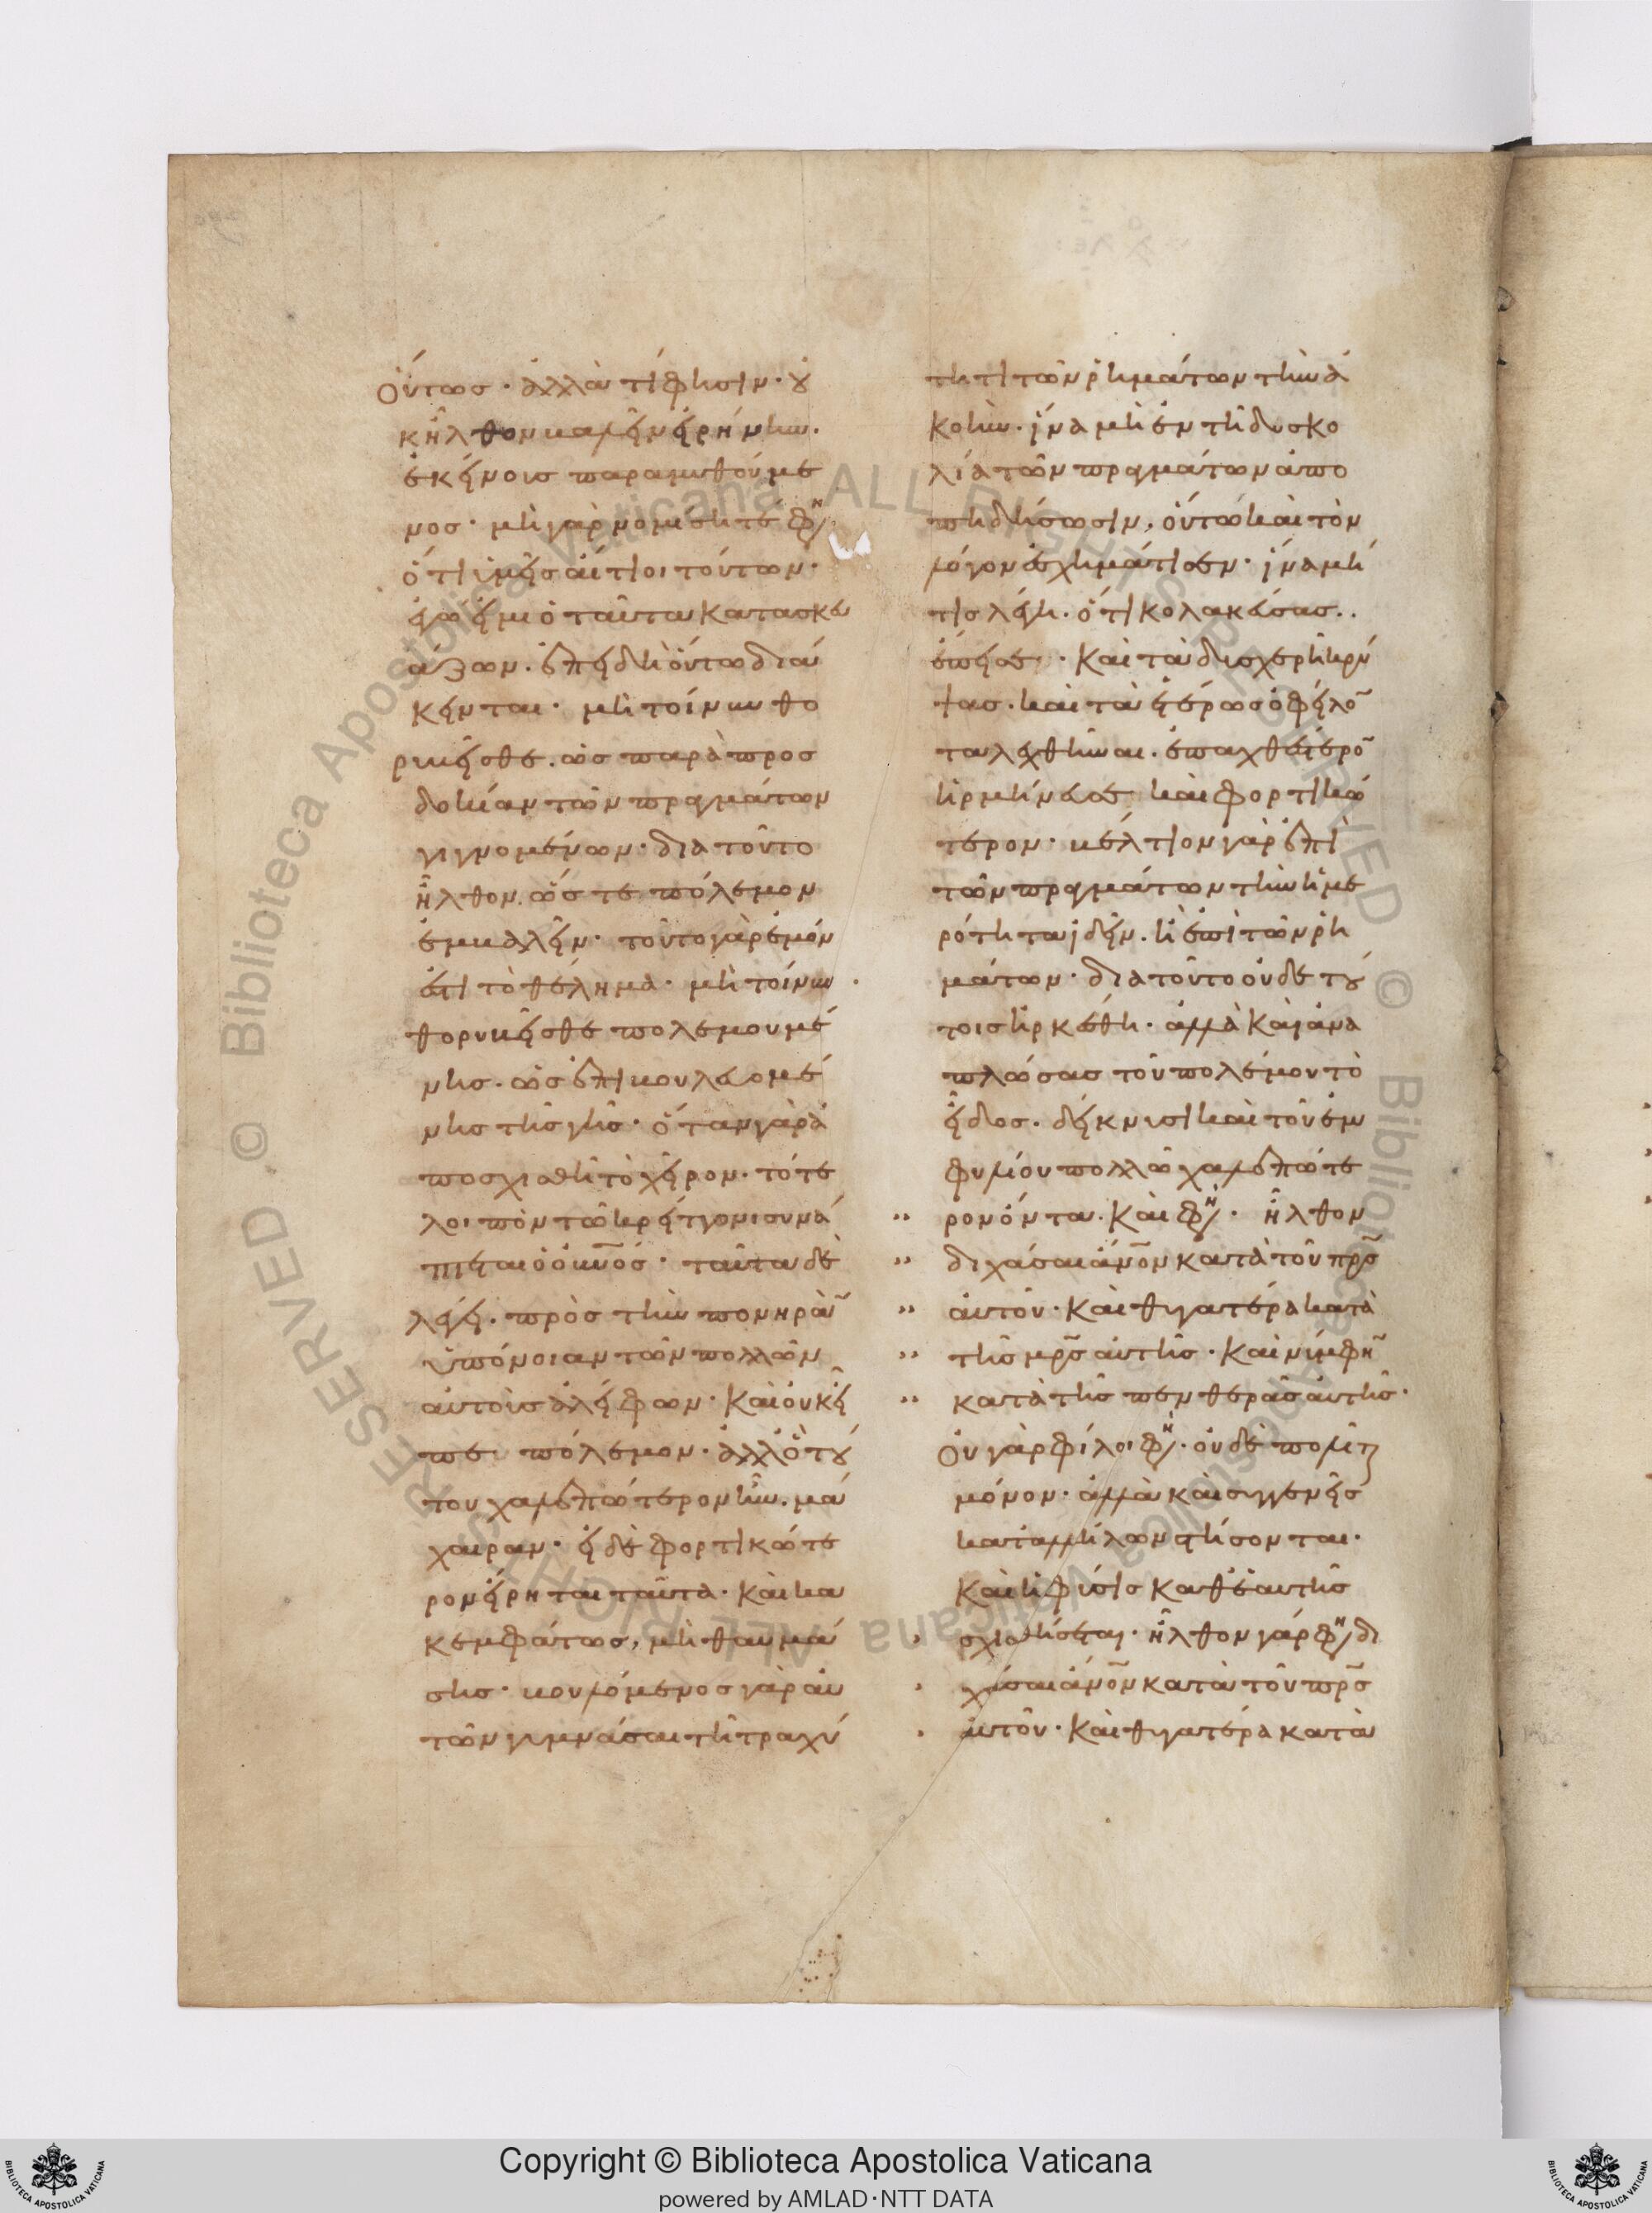 Οὕτως · ἀλλὰ τί φησιν · οὐ
κ ἦλθον βαλεῖν εἰρήνην ·
ἐκείνους παραμυθούμε
νος · μὴ γὰρ νομίσητέ φη
ὅτι ὑμεῖς αἴτιοι τούτων ·
ἐγώ εἰμι ὁ ταῦτα κατασκευ
άζων · ἐπειδὴ οὕτω διά
κεινται · μὴ τοίνυν θο
ρυβεῖσθε · ὡς παρὰ προσ
δοκίαν τῶν πραγμάτων
γιγνομένων · διατοῦτο
ἦλθον · ὥστε πόλεμον
ἐμβαλεῖν · τοῦτο γὰρ ἐμόν
ἐστι τὸ θέλημα · μὴ τοίνυν
θορυβεῖσθε πολεμουμέ
νης · ὡς ἐπιβουλευομέ
νης τῆς γῆς · ὅταν γὰρ ἀ
ποσχισθῆ τὸ χεῖρον · τότε
λοιπὸν τῶ κρείττονι συνά
πτεται ὁ οὐνος · ταῦτα δὲ
λέγει · πρὸς τὴν πονηρὰν
ὑπόνοιαν τῶν πολλῶν
αὐτοὺς ἀλείφων · Καὶ οὐκ εἶ
πε πόλεμον · ἀλλ' ὃ τού
του χαλεπώτερον ἦν · μά
χαιραν · εἰ δὲ φορτικώτε
ρον εἴρηται ταῦτα · καὶ κα
κεμφάτως, μὴ θαυμά
σης · βουλόμενος γὰρ αὐ
τῶν γυμνάσαι τῆ τραχύ
τητι τῶν ῥημάτων τὴν ἀ
κοὴν · ἵνα μὴ ἐν τῆ δυσκο
λία τῶν πραγμάτων ἀπο
πηδήσωσιν, οὕτω καὶ τὸν
λόγον ἐσχημάτισεν · ἵνα μή
τις λέγη · ὅτι κολακεύσας ··
ἔπεισε · Καὶ τὰ δυσχερῆ κρύ
ψας · καὶ τὰ ἑτέρως ὀφείλον
τα λεχθῆναι · ἐπαχθέστερον
ἡρμήνευσε καὶ φορτικώ
τερον · βέλτιον γὰρ ἐπὶ
τῶν πραγμάτων τὴν ἡμε
ρότητα ἰδεῖν · ἢ ἐπὶ τῶν ῥη
μάτων · διατοῦτο οὐδὲ τού
τοις ἠρκέσθη · ἀλλὰ καὶ ἀνα
πλώσας τοῦ πολέμου τὸ
εἶδος · δείκνυσι καὶ τοῦ ἐμ
φυλίου πολλῶ χαλεπώτε
ρον ὄντα · Καὶ φη · ἦλθον
διχάσαι ἄνον κατὰ τοῦ πρς
αὐτοῦ · Καὶ θυγατέρα κατὰ
τῆς μρς αὐτῆς · Καὶ νύμφην
κατὰ τῆς πενθερᾶς αὐτῆς ·
Οὐ γὰρ φίλοι φη · οὐδὲ πολῖται
μόνον · ἀλλὰ καὶ συγγενεῖς
κατ' ἀλλήλων στήσονται ·
Καὶ ἡ φύσις καθ' ἑαυτῆς
σχισθήσεται · ἦλθον γάρ φη δι
χάσαι ἄνον κατὰ τοῦ πρς
αὐτοῦ · Καὶ θυγατέρα κατὰ
Copyright © Biblioteca Apostolica Vaticana
powered by AMLAD·NTT DATA